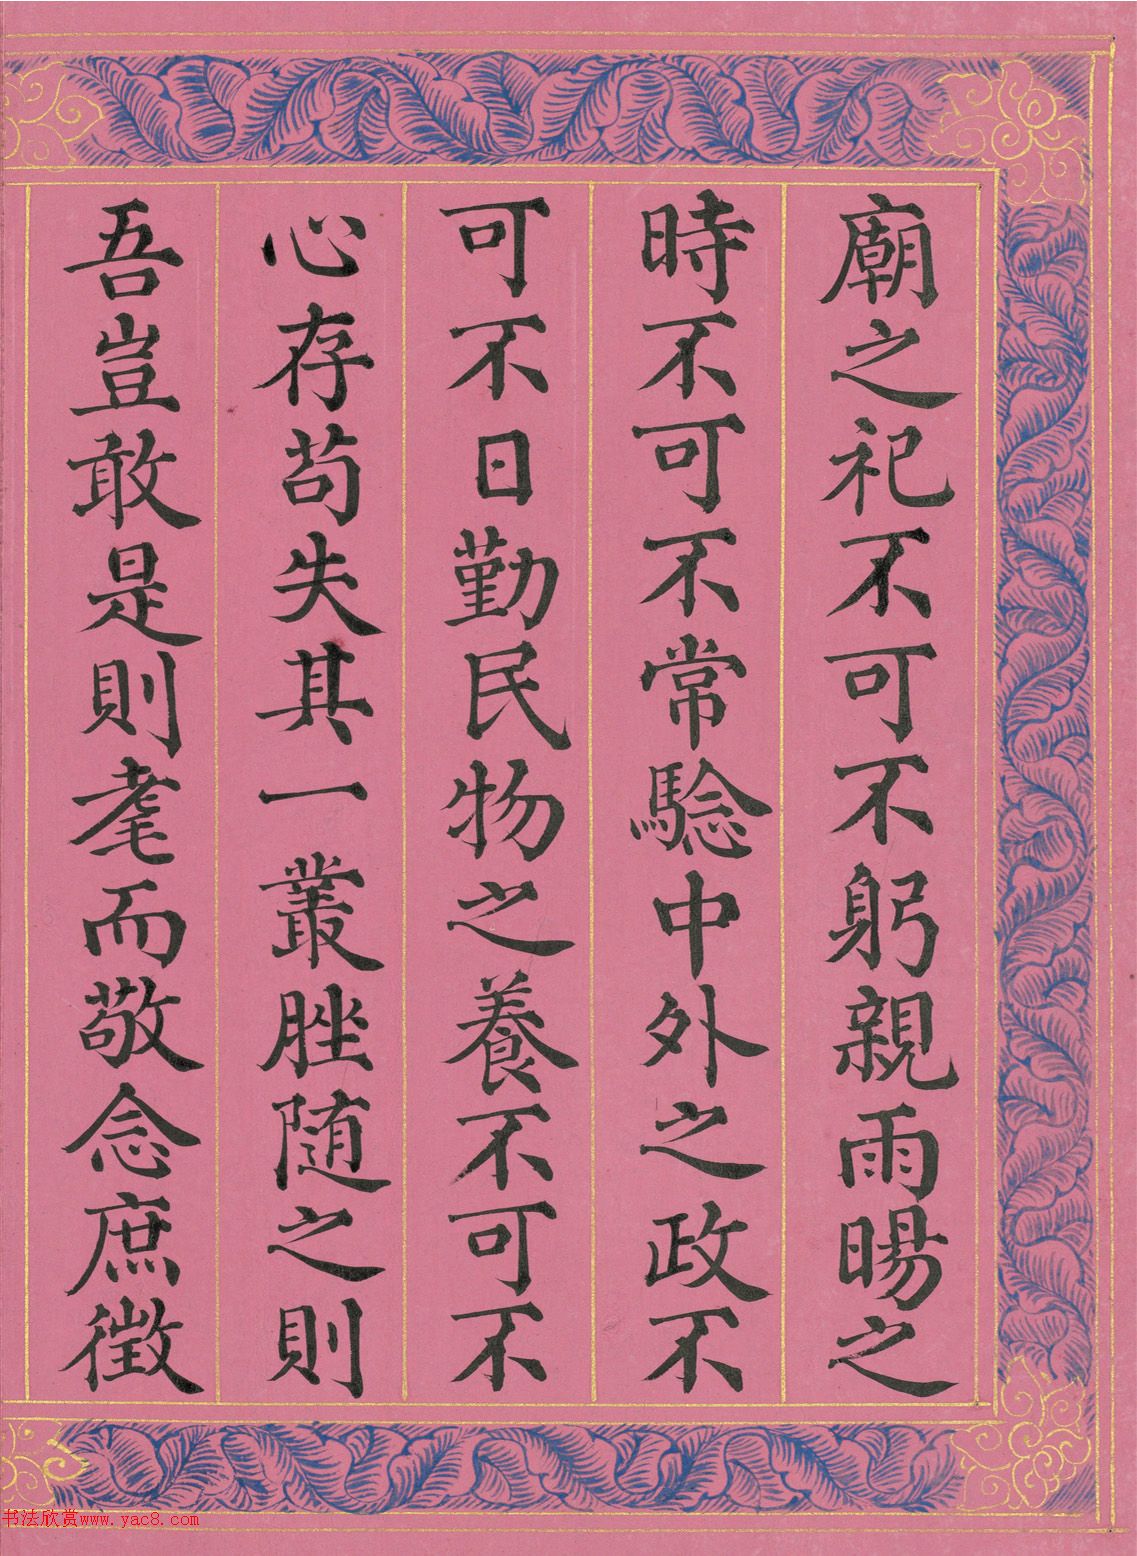 廟之祀不可不躬親雨暘之
時不可不常驗中外之政不
可不日勤民物之養不可不
心存苟失其一叢脞随之則
吾豈敢是則耄而敬念庶徵
书法欣赏www.yac8.com